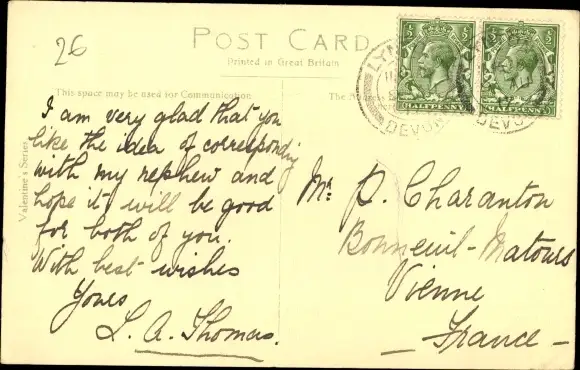 26
POST CARD
Printed in Great Britain
This space may be used for Communication
The
Valentine's Series
HALFPENNY
HALFPENNY
LYN
DEVON
DEVON
I am very glad that you
like the idea of corresponding
with my nephew and
hope it will be good
for both of you.
With best wishes
Yours
L. A. Thomas.
Mr. P. Charanton
Bonneuil-Matours
Vienne
— France —